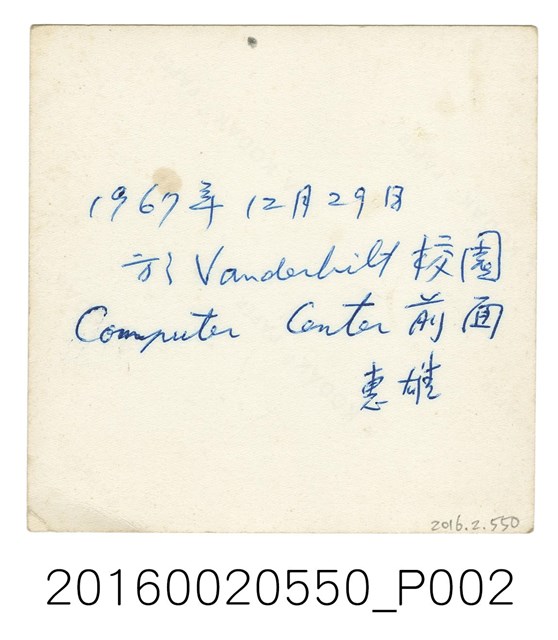 1967年12月29日
於Vanderbilt校園
Computer Center前面
惠雄
2016.2.550
20160020550_P002